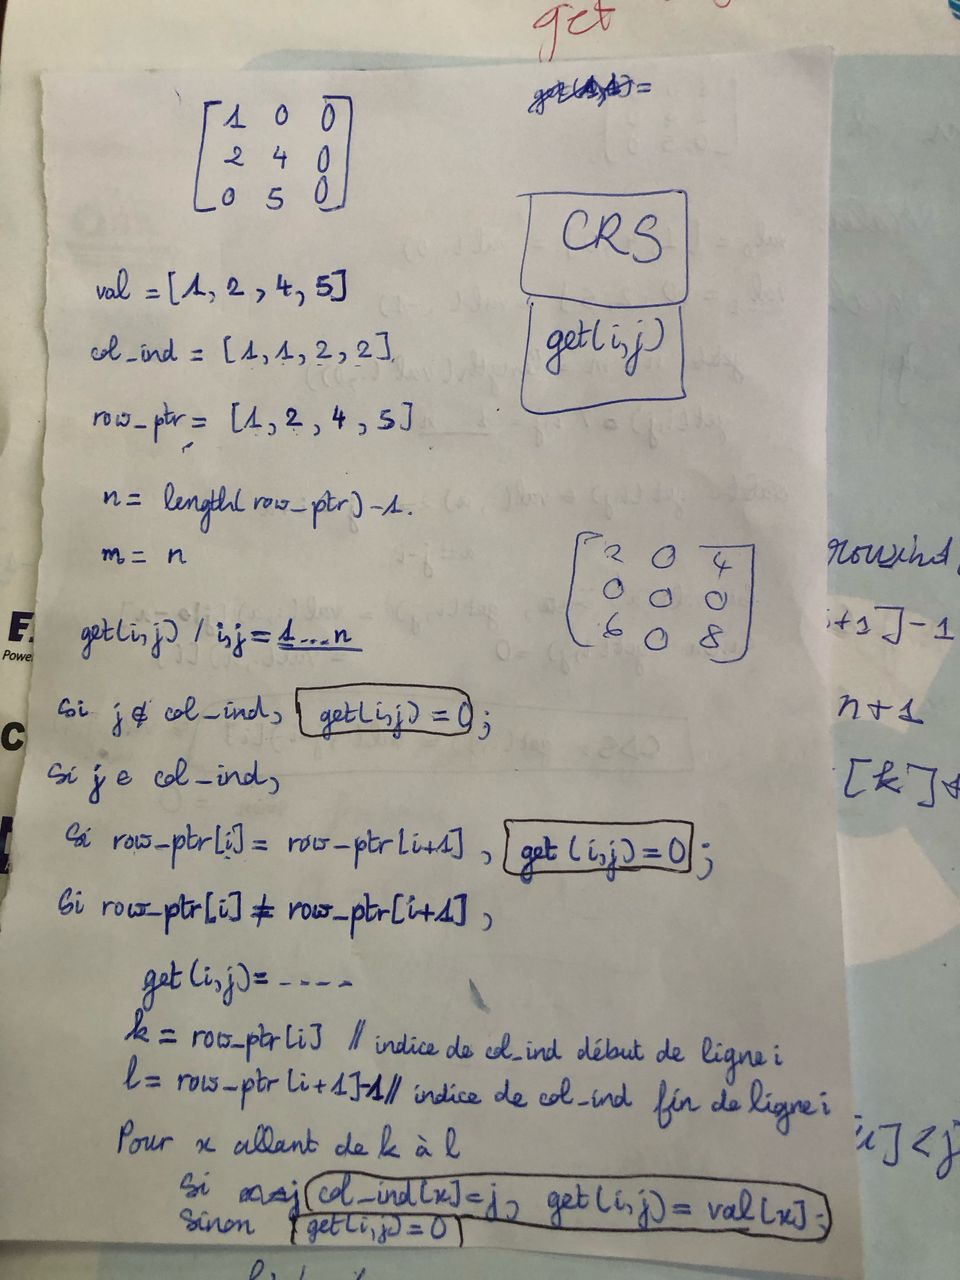 get
get(1,1) =
[1 0 0
2 4 0
0 5 0]
CRS
get(i,j)
val = [1, 2, 4, 5]
col_ind = [1, 1, 2, 2]
row_ptr = [1, 2, 4, 5]
n = length(row_ptr) -1.
m = n
[2 0 4
0 0 0
6 0 8]
get(i,j) / i,j = 1...n
Si j ∉ col_ind, get(i,j) = 0 ;
Si j e col_ind,
Si row_ptr[i] = row_ptr[i+1] , get (i,j) = 0 ;
Si row_ptr[i] ≠ row_ptr[i+1] ,
get(i,j) = ----
k = row_ptr[i] // indice de col_ind début de ligne i
l = row_ptr[i+1]-1 // indice de col_ind fin de ligne i
Pour x allant de k à l
Si col_ind[x] = j, get(i,j) = val[x] ;
Sinon get(i,j) = 0
rowind
i+1]-1
n+1
[k]+
i] < j
E
Power
C